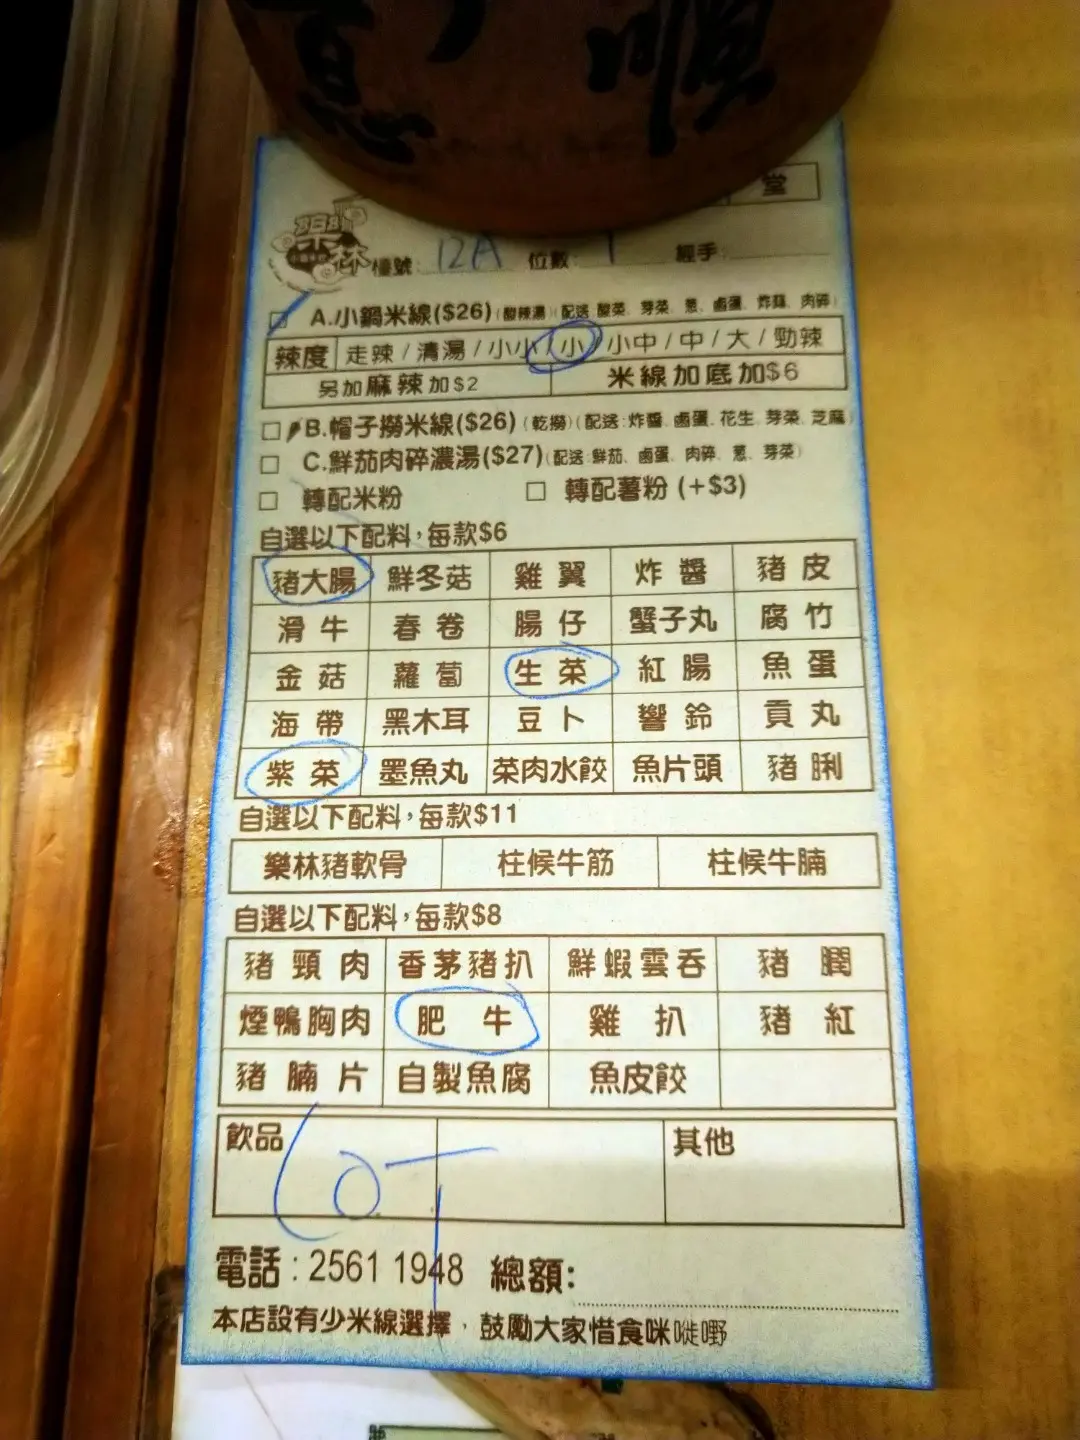 意 順
堂
樂林 檯號: 12A 位數: 1 經手:
A.小鍋米線($26)(酸辣湯)(配送:酸菜、芽菜、葱、鹵蛋、炸蒜、肉碎)
辣度 走辣/清湯/小小/小/小中/中/大/勁辣
另加麻辣加$2 米線加底加$6
B.帽子撈米線($26)(乾撈)(配送:炸醬、鹵蛋、花生、芽菜、芝麻)
C.鮮茄肉碎濃湯($27)(配送:鮮茄、鹵蛋、肉碎、葱、芽菜)
轉配米粉 轉配薯粉 (+$3)
自選以下配料,每款$6
豬大腸 鮮冬菇 雞翼 炸醬 豬皮
滑牛 春卷 腸仔 蟹子丸 腐竹
金菇 蘿蔔 生菜 紅腸 魚蛋
海帶 黑木耳 豆卜 響鈴 貢丸
紫菜 墨魚丸 菜肉水餃 魚片頭 豬脷
自選以下配料,每款$11
樂林豬軟骨 柱候牛筋 柱候牛腩
自選以下配料,每款$8
豬頸肉 香茅豬扒 鮮蝦雲吞 豬膶
煙鴨胸肉 肥牛 雞扒 豬紅
豬腩片 自製魚腐 魚皮餃
飲品 其他
COT
電話:2561 1948 總額:
本店設有少米線選擇,鼓勵大家惜食咪嘥嘢